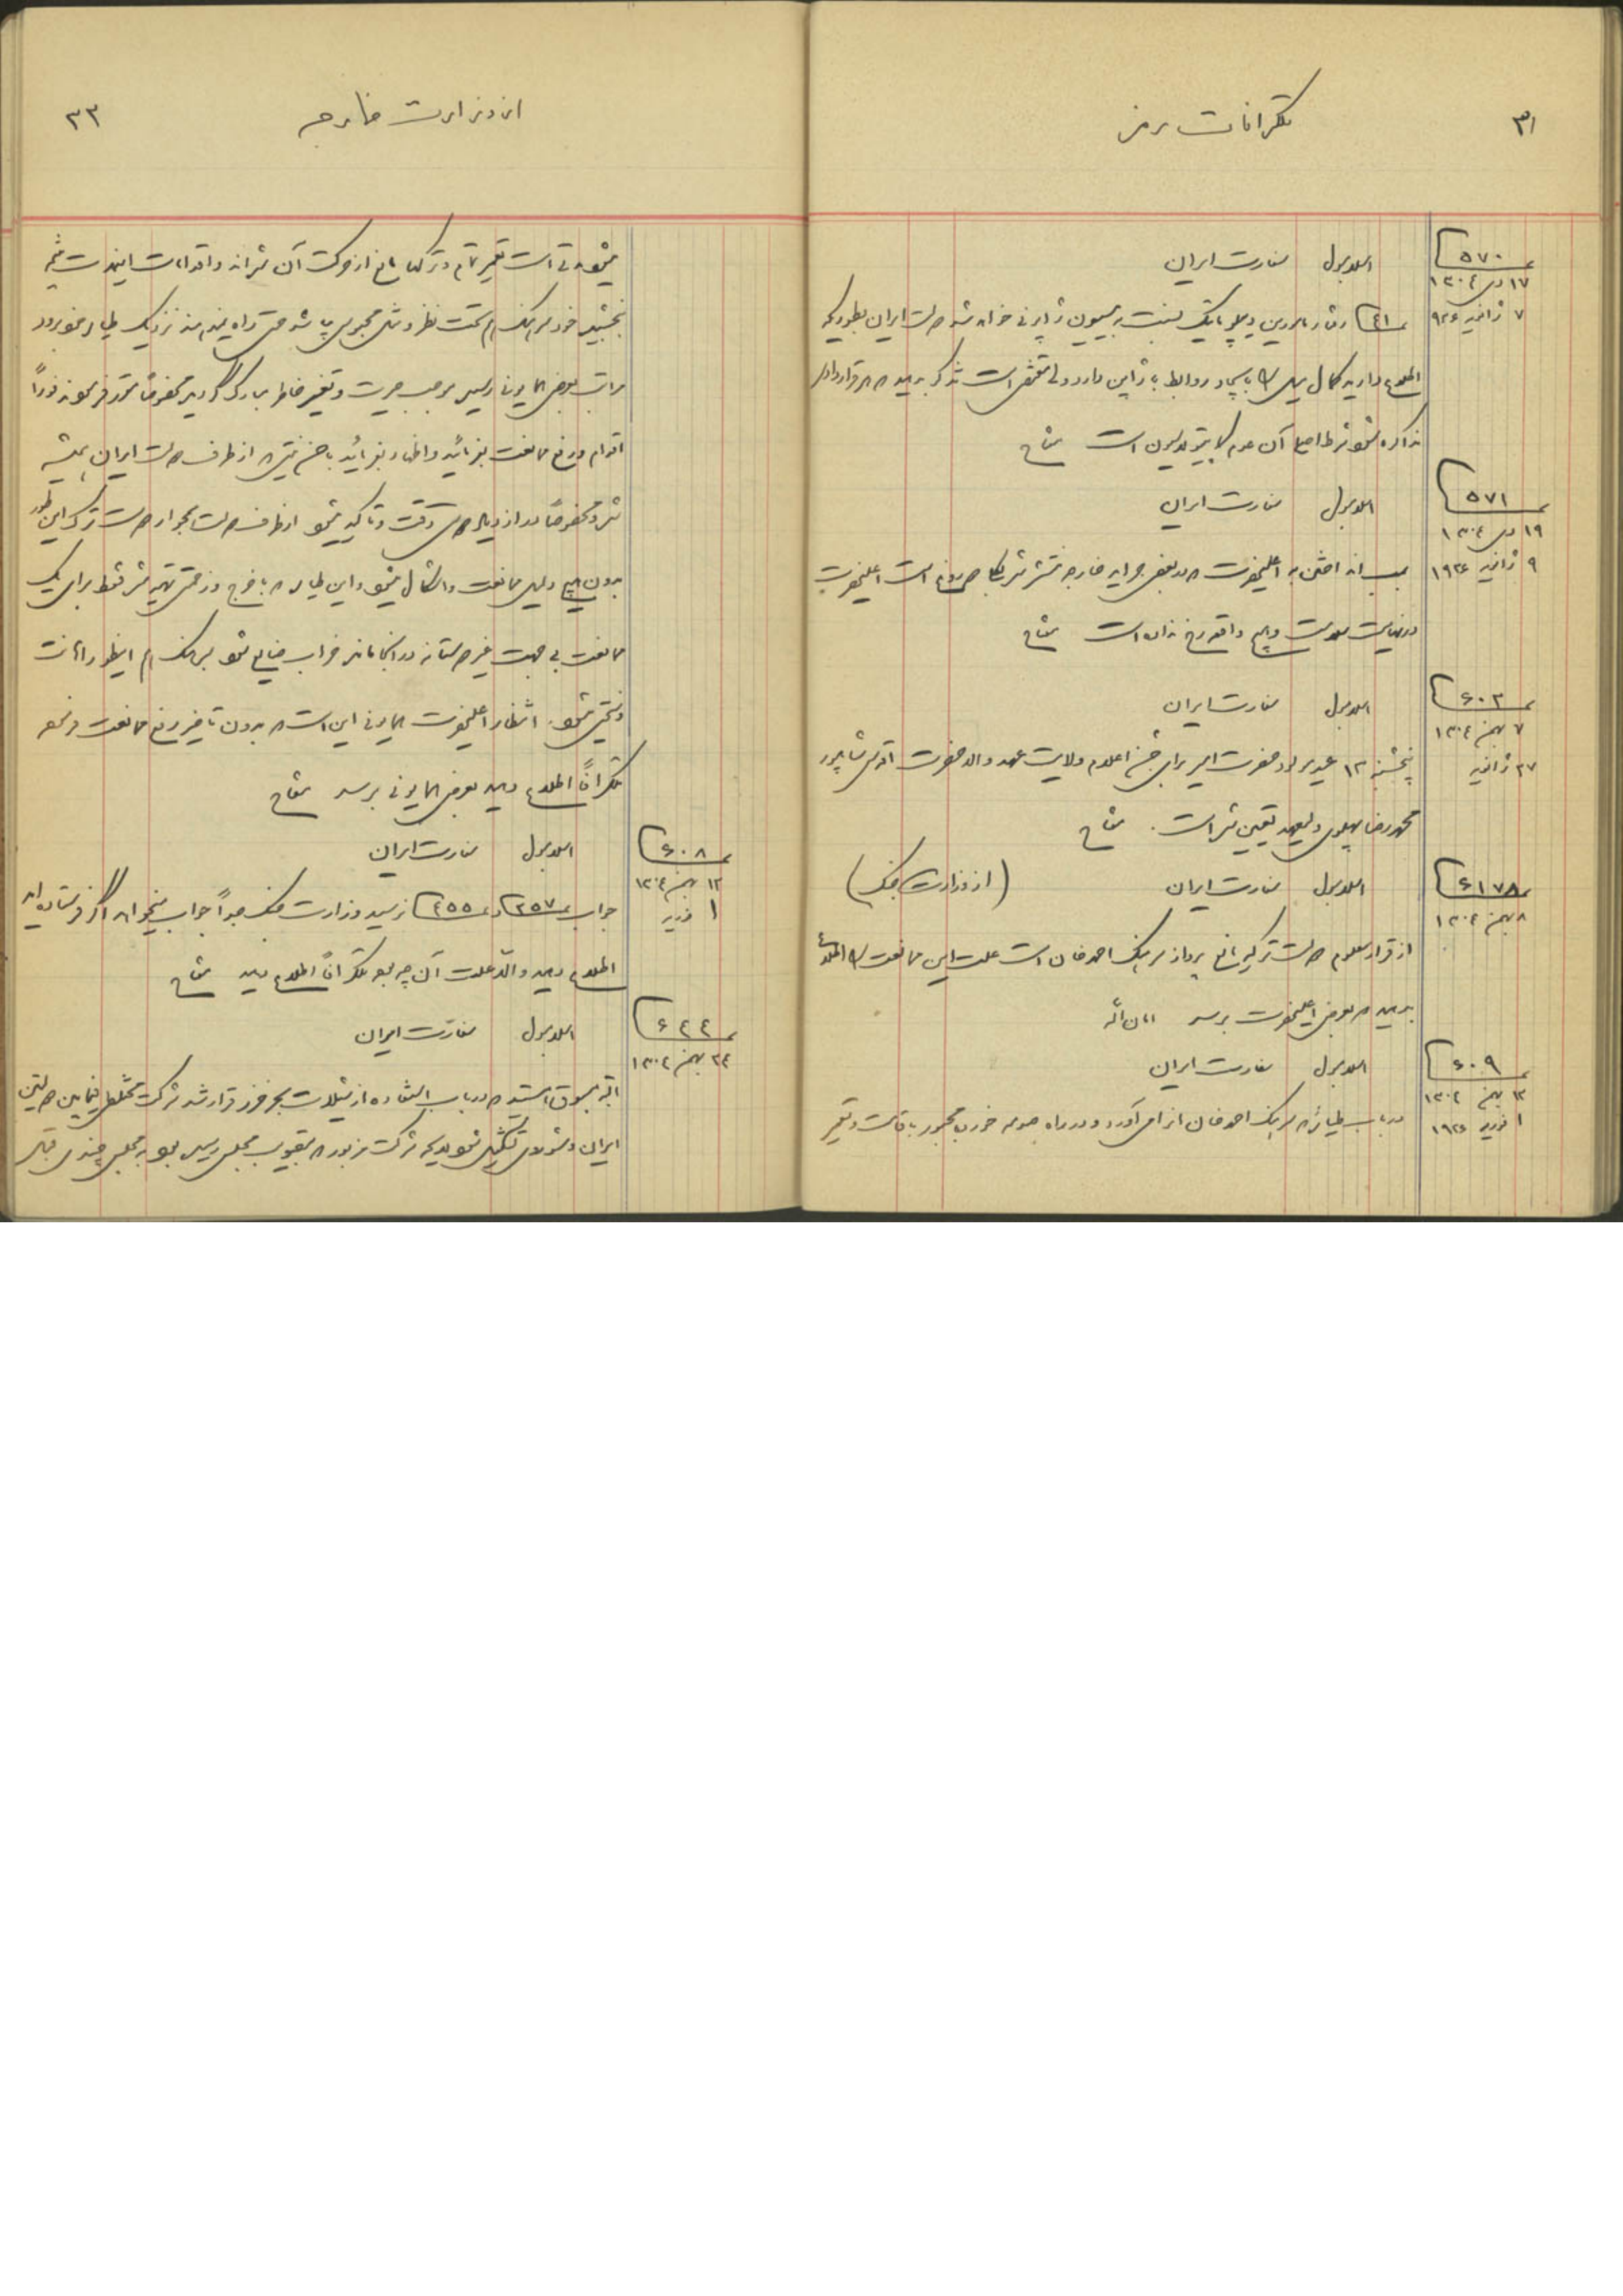 ۳۱
تلگرافات رمز
۵۷۰
۱۷ دی ۱۳۰۴
۷ ژانویه ۹۲۶
اسلامبول سفارت ایران
۴۱ رفتار مامورین دیپلوماتیک نسبت به میسیون ژاپونی خواهد شد دولت ایران بطوریکه
اطلاع دارید کمال میل را با ایجاد روابط با ژاپن دارد ولی مقتضی است تذکر بدهید هر قراردادی
مذاکره شود شرط اصلی آن عدم کاپیتولاسیون است
۵۷۱
۱۹ دی ۱۳۰۴
۹ ژانویه ۱۹۲۶
اسلامبول سفارت ایران
بمب انداختن به اعلیحضرت که در بعضی جراید خارجه منتشر شده بکلی دروغ است اعلیحضرت
در نهایت سلامت و هیچ واقعه رخ نداده است
۶۰۲
۷ بهمن ۱۳۰۴
۲۷ ژانویه
اسلامبول سفارت ایران
پنجشنبه ۱۲ عید مولود حضرت امیر برای جشن اعلام ولایت عهد والاحضرت اقدس شاهپور
محمدرضا پهلوی ولیعهد تعیین شده است.
۶۱۷۸
۸ بهمن ۱۳۰۴
اسلامبول سفارت ایران (از وزارت جنگ)
از قرار معلوم دولت ترکیه مانع پرواز سرهنگ احمدخان است علت این ممانعت را اطلاع
بدهید که بعرض اعلیحضرت برسد امان الله
۶۰۹
۱۲ بهمن ۱۳۰۴
۱ فوریه ۱۹۲۶
اسلامبول سفارت ایران
در باب طیاره که سرهنگ احمدخان از می‌آورد و در راه صدمه خورده مجبور باقامت و تعمیر
از وزارت خارجه
۳۳
میشود مدتی است تعمیر تمام و ترکها مانع از حرکت آن شده‌اند و اقدامات اینمدت نتیجه
نبخشید خود سرهنگ هم تحت نظر و مثل محبوس میباشد حتی راه نمیدهند نزدیک طیاره خود برود
مراتب بعرض همایونی رسید موجب حیرت و تغیر خاطر مبارک گردید مخصوصاً مقرر فرمودند فوراً
اقدام در رفع ممانعت بفرمائید و اظهار بفرمائید با حسن نیتی که از طرف دولت ایران همیشه
شده و مخصوصاً در ازدیاد دوستی دقت و تاکید میشود از طرف دولت همجوار دولت ترک این طور
بدون هیچ دلیل ممانعت و اشکال میشود و این طیاره که با خرج و زحمتی تهیه شده فقط برای یک
ممانعت بی جهت غیر دوستانه در آنجا مانده خراب ضایع شود سرهنگ هم اینطور اهانت
و سختی میشود. انتظار اعلیحضرت همایونی این است که بدون تاخیر رفع ممانعت فرموده
تلگرافاً اطلاع دهید بعرض همایونی برسد
۶۰۸
۱۲ بهمن ۱۳۰۴
۱ فوریه
اسلامبول سفارت ایران
جواب ۳۵۷ و ۴۵۵ نرسید وزارت جنگ جداً جواب میخواهد اگر فرستاده‌اید
اطلاع دهید والا علت آن چه بود تلگرافاً اطلاع دهید
۶۴۴
۲۴ بهمن ۱۳۰۴
اسلامبول سفارت ایران
البته مسبوق هستید که در باب استفاده از شیلات بحر خزر قرار شد شرکت مختلطی فیمابین دولتین
ایران و شوروی تشکیل شود لایحه شرکت مزبور که بتصویب مجلس رسید بود به مجلس چندی قبل